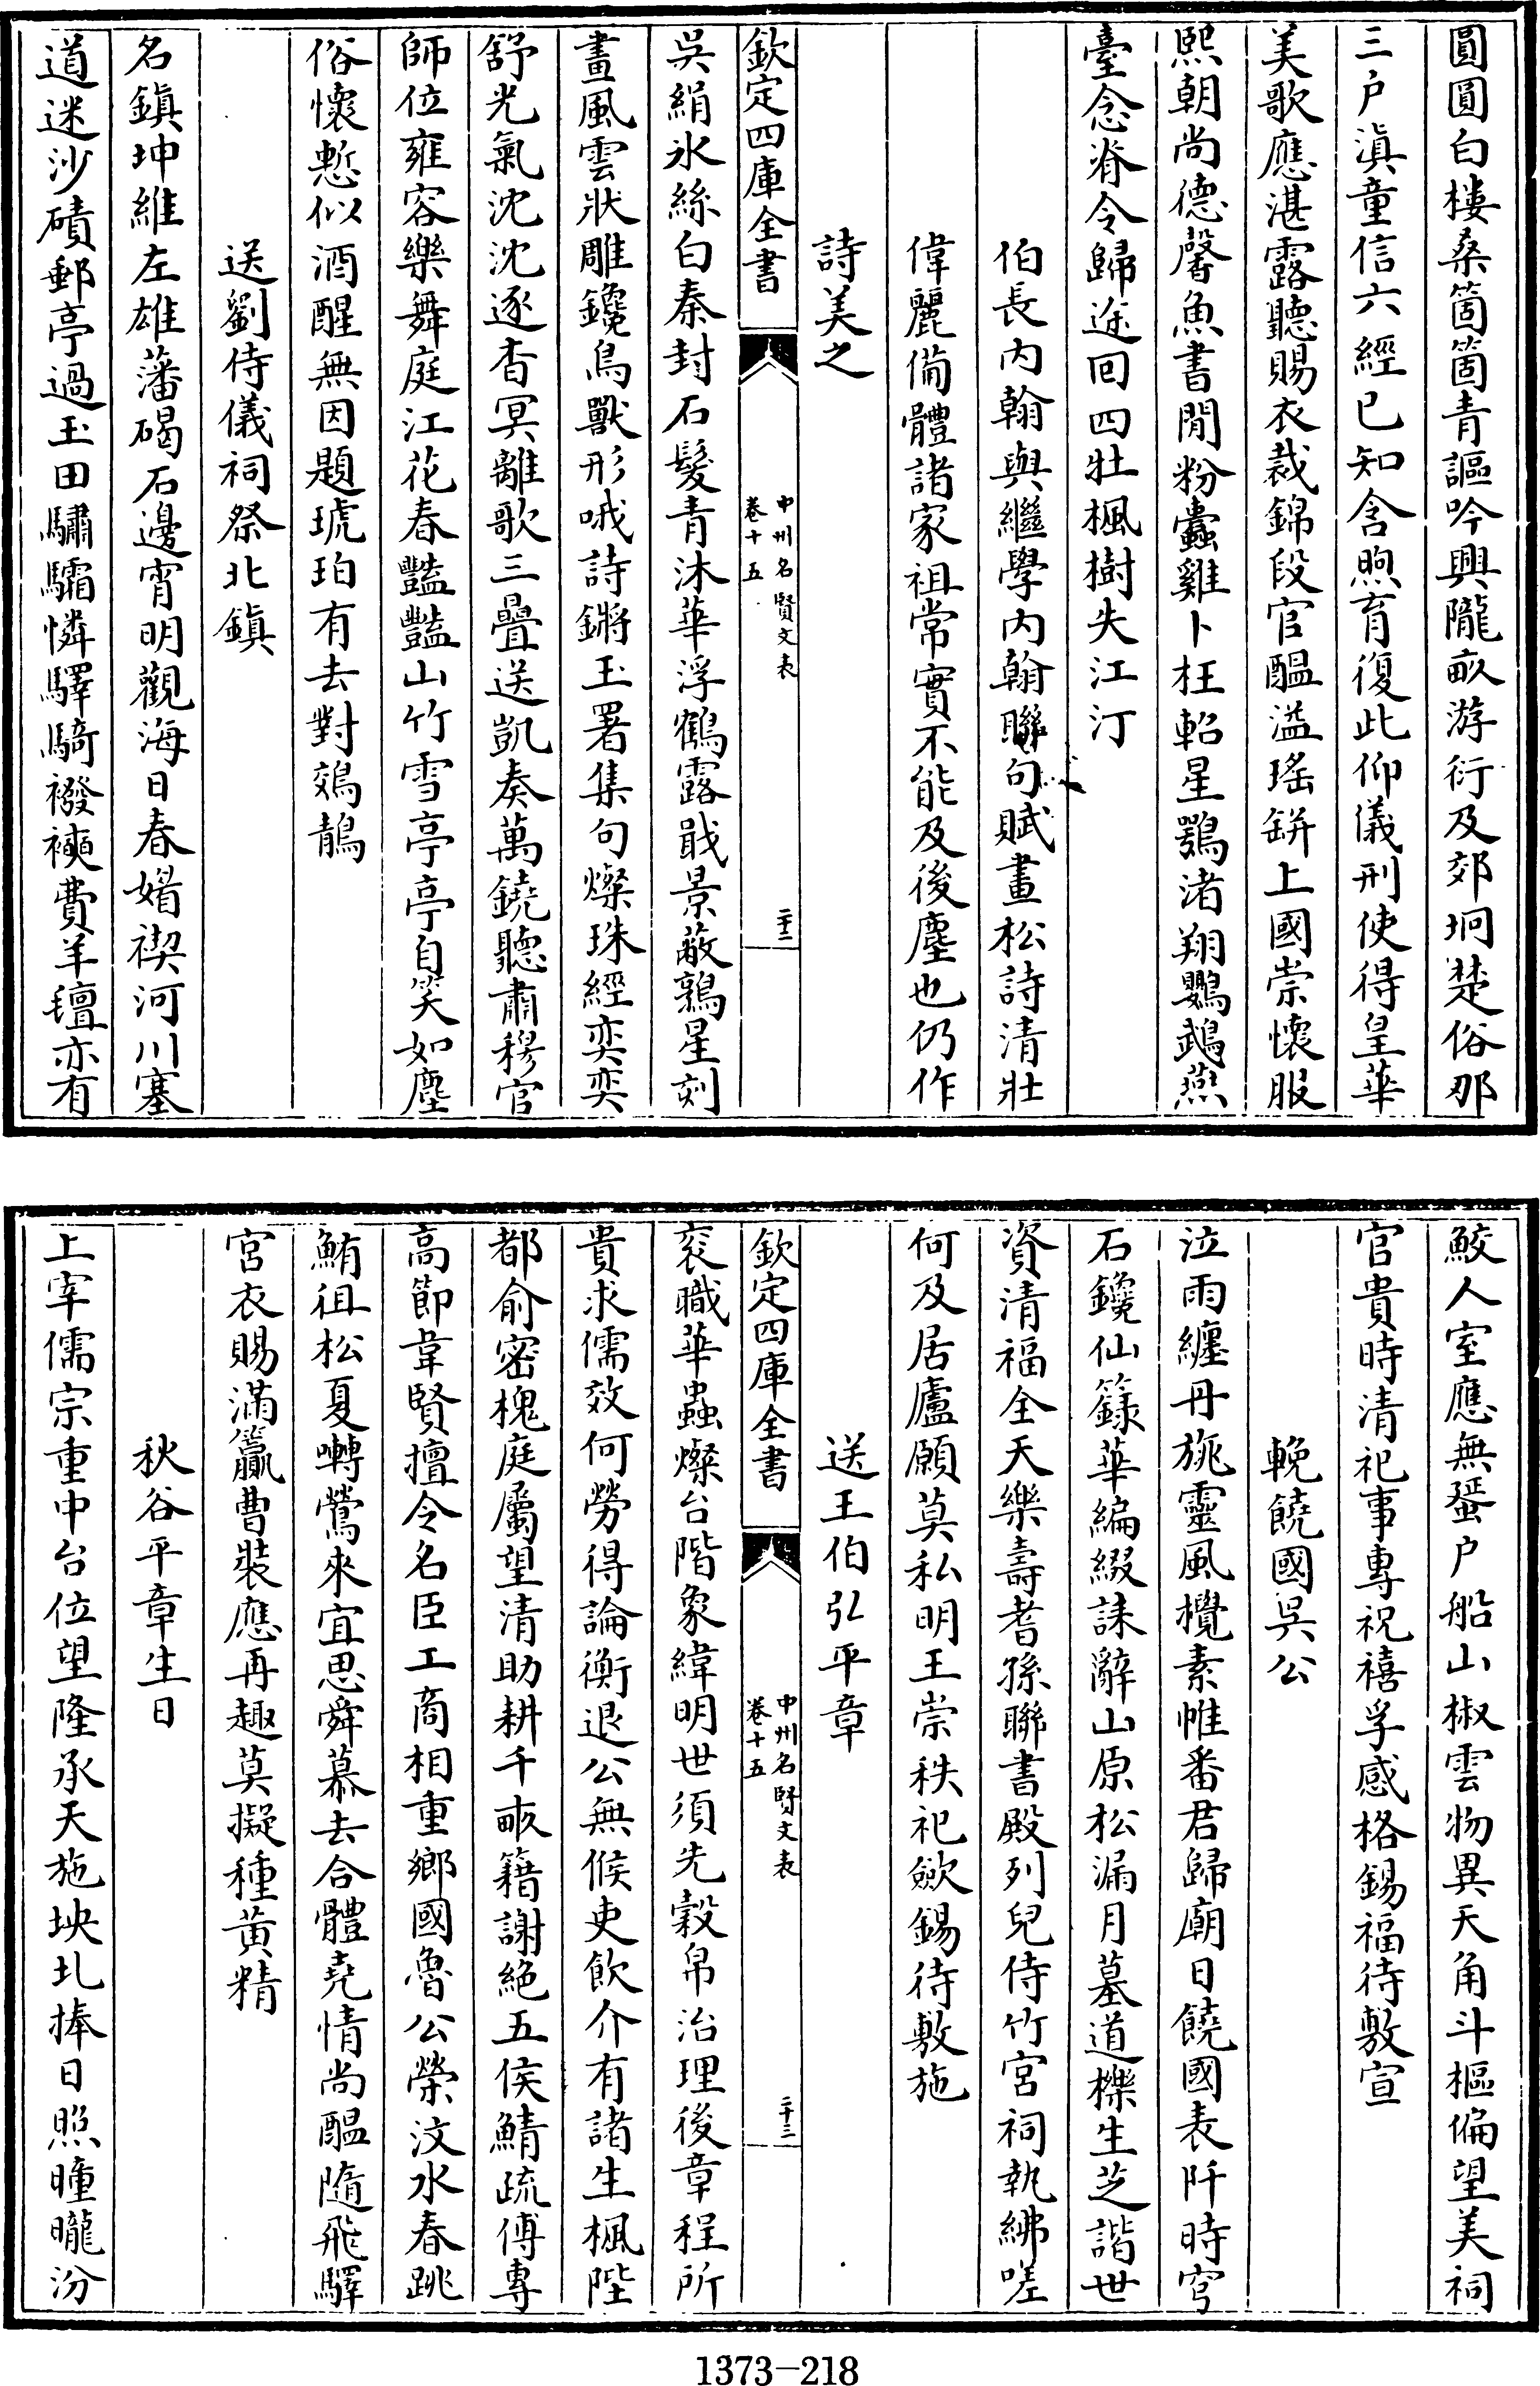 圓圓白樓桑箇箇青謳吟興隴畝游衍及郊坰楚俗那
三户滇童信六經已知含煦育復此仰儀刑使得皇華
美歌應湛露聽賜衣裁錦段官醞溢瑤缾上國崇懷服
熙朝尚德馨魚書閒粉蠹雞卜枉軺星鶚渚翔鸚鵡燕
臺念脊令歸途回四牡楓樹失江汀
伯長内翰與繼學内翰聯句賦畫松詩清壯
偉麗備體諸家祖常實不能及後塵也仍作
詩美之
欽定四庫全書
中州名賢文表
卷十五
二十二
吳絹氷絲白秦封石髮青沐華浮鶴露戢景蔽鶉星刻
畫風雲狀雕鑱鳥獸形哦詩鏘玉署集句燦珠經奕奕
舒光氣沈沈逐杳冥離歌三疊送凱奏萬鐃聽肅穆官
師位雍容樂舞庭江花春豔豔山竹雪亭亭自笑如塵
俗懷慙似酒醒無因題琥珀有去對鵁鶄
送劉侍儀祠祭北鎮
名鎮坤維左雄藩碣石邊宵明觀海日春媠禊河川塞
道迷沙磧郵亭過玉田驌驦憐驛騎襏襫費羊氊亦有
鮫人室應無蜑户船山椒雲物異天角斗樞偏望美祠
官貴時清祀事專祝禧孚感格錫福待敷宣
輓饒國吳公
泣雨纏丹旐靈風攪素帷番君歸廟日饒國表阡時穹
石鑱仙籙華編綴誄辭山原松漏月墓道櫟生芝諧世
資清福全天樂壽耆孫聯書殿列兒侍竹宮祠執紼嗟
何及居廬願莫私明王崇秩祀歛錫待敷施
送王伯弘平章
欽定四庫全書
中州名賢文表
卷十五
二十三
袞職華蟲燦台階象緯明世須先穀帛治理後章程所
貴求儒效何勞得論衡退公無候吏飲介有諸生楓陛
都俞密槐庭屬望清助耕千畝籍謝絶五侯鯖疏傅專
高節韋賢擅令名臣工商相重鄉國魯公榮汶水春跳
鮪徂松夏囀鶯來宜思舜慕去合體堯情尚醞隨飛驛
宮衣賜滿籯曹裝應再趣莫擬種黄精
秋谷平章生日
上宰儒宗重中台位望隆承天施坱圠捧日照曈曨汾
1373-218